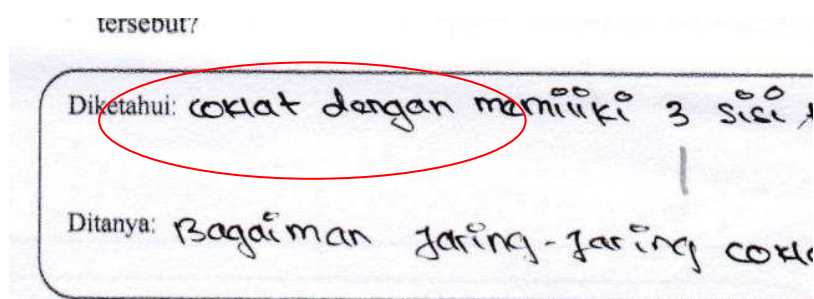 tersebut?
Diketahui: coklat dengan memiliki 3 sisi,
Ditanya: Bagaiman Jaring-Jaring cokla